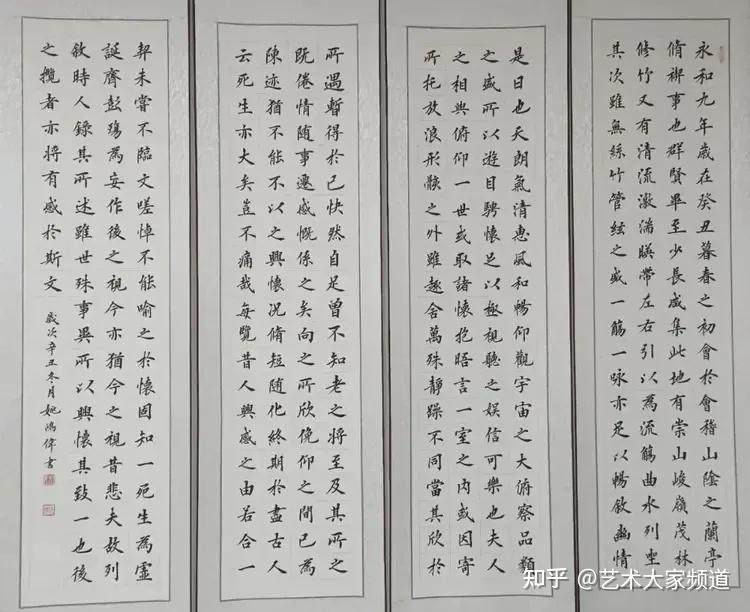 永和九年歲在癸丑暮春之初會於會稽山陰之蘭亭
脩禊事也群賢畢至少長咸集此地有崇山峻嶺茂林
修竹又有清流激湍暎帶左右引以為流觴曲水列坐
其次雖無絲竹管絃之盛一觴一咏亦足以暢敘幽情
是日也天朗氣清惠風和暢仰觀宇宙之大俯察品類
之盛所以遊目騁懷足以極視聽之娛信可樂也夫人
之相與俯仰一世或取諸懷抱晤言一室之內或因寄
所托放浪形骸之外雖趣舍萬殊靜躁不同當其欣於
所遇暫得於己快然自足曾不知老之將至及其所之
既倦情隨事遷感慨係之矣向之所欣俛仰之間已為
陳迹猶不能不以之興懷況脩短隨化終期於盡古人
云死生亦大矣豈不痛哉每覽昔人興感之由若合一
契未嘗不臨文嗟悼不能喻之於懷固知一死生為虛
誕齊彭殤為妄作後之視今亦猶今之視昔悲夫故列
敘時人錄其所述雖世殊事異所以興懷其致一也後
之攬者亦將有感於斯文
歲次辛丑冬月姚鴻偉書
知乎 @艺术大家频道